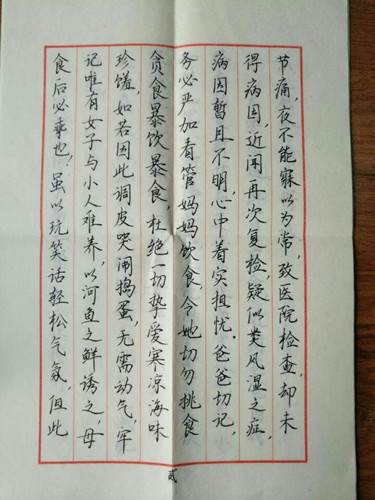 节痛，夜不能寐以为常，致医院检查，却未
得病因，近闻再次复检，疑似类风湿之症，
病因暂且不明，心中着实担忧．爸爸切记，
务必严加看管妈妈饮食，令她切勿挑食
贪食暴饮暴食，杜绝一切挚爱寒凉海味
珍馐，如若因此调皮哭闹捣蛋，无需动气，牢
记唯有女子与小人难养，以河鱼之鲜诱之，母
食后必乖也！虽以玩笑话轻松气氛，但此
贰